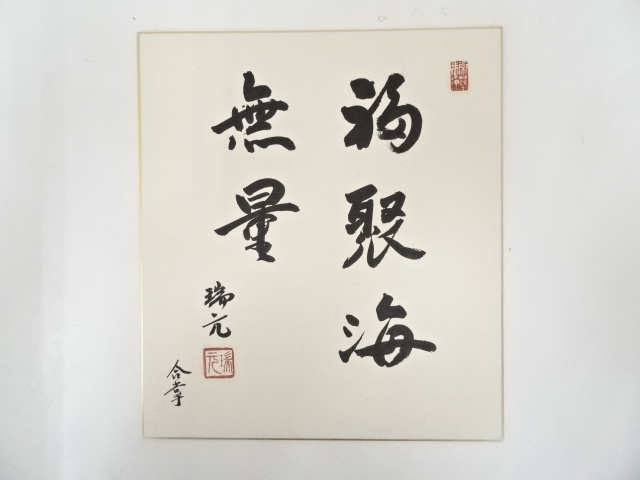 福聚海
無量
瑞元
合掌